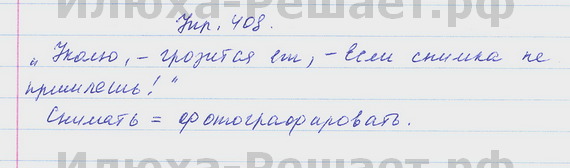 Илюха-Решает.рф
Упр. 408.
„Уколю, – грозится ёж, – Если снимка не
пришлёшь!"
Снимать = фотографировать.
Илюха-Решает.рф